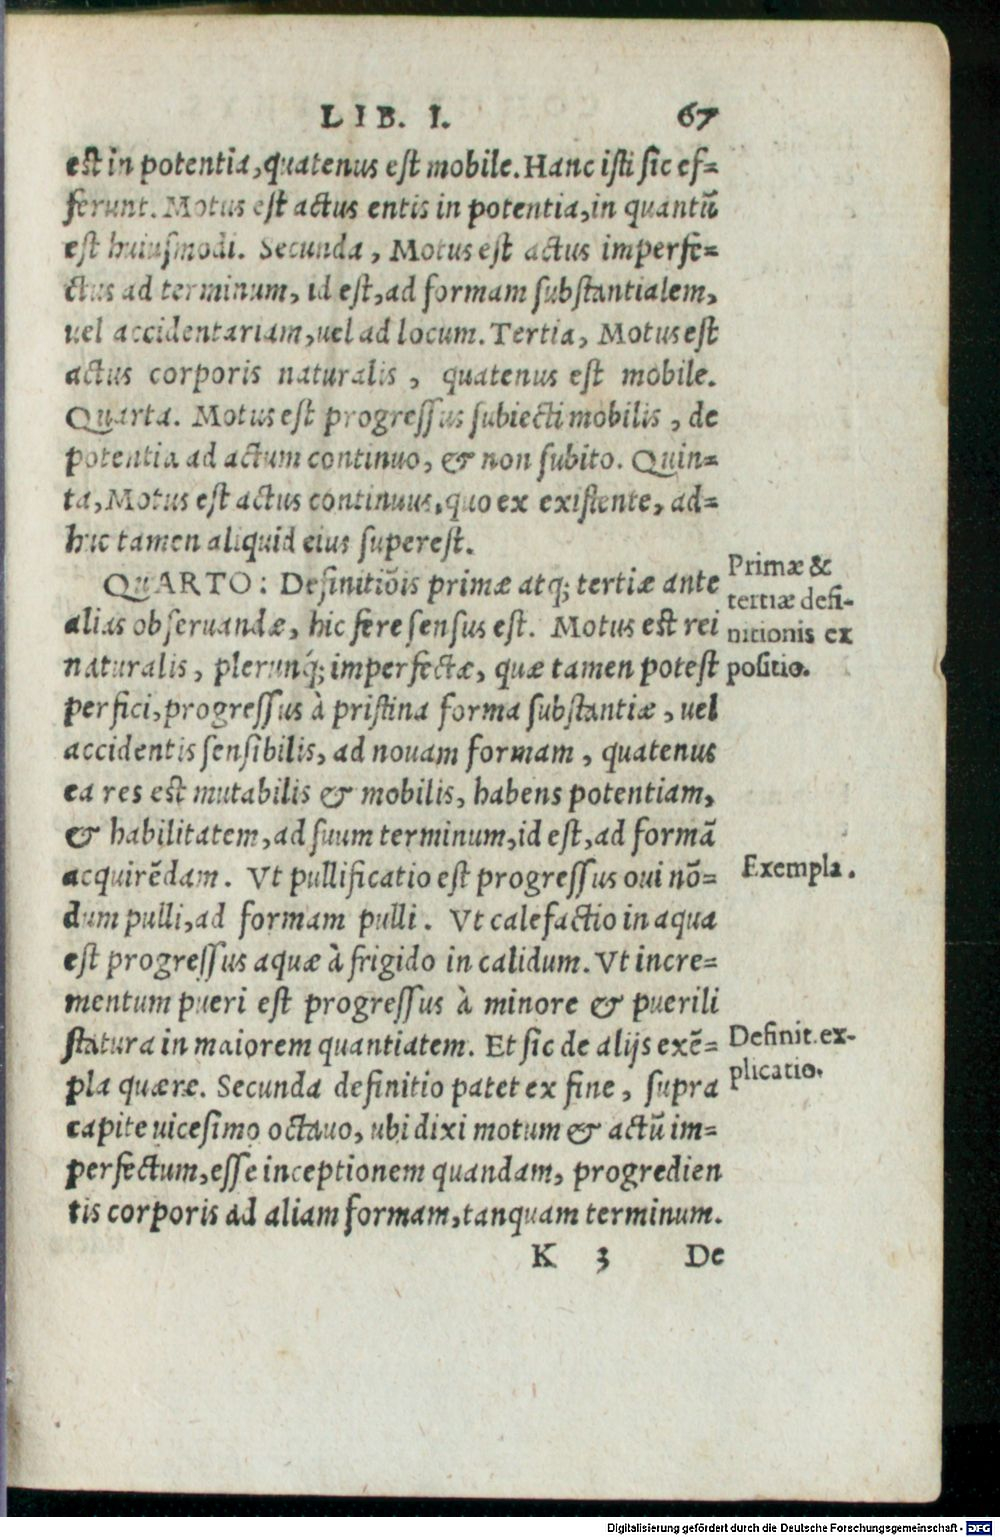 LIB. I. 67
est in potentia, quatenus est mobile. Hanc isti sic ef-
ferunt. Motus est actus entis in potentia, in quantū
est huiusmodi. Secunda, Motus est actus imperfe-
ctus ad terminum, id est, ad formam substantialem,
uel accidentariam, uel ad locum. Tertia, Motus est
actus corporis naturalis, quatenus est mobile.
Quarta. Motus est progressus subiecti mobilis, de
potentia ad actum continuo, & non subito. Quin-
ta, Motus est actus continuus, quo ex existente, ad-
huc tamen aliquid eius superest.
QUARTO: Definitiōis primæ atq; tertiæ ante
alias obseruandæ, hic fere sensus est. Motus est rei
naturalis, plerunq́; imperfectæ, quæ tamen potest
perfici, progressus à pristina forma substantiæ, uel
accidentis sensibilis, ad nouam formam, quatenus
ea res est mutabilis & mobilis, habens potentiam,
& habilitatem, ad suum terminum, id est, ad formā
acquirēdam. Vt pullificatio est progressus oui nō-
dum pulli, ad formam pulli. Vt calefactio in aqua
est progressus aquæ à frigido in calidum. Vt incre-
mentum pueri est progressus à minore & puerili
statura in maiorem quantiatem. Et sic de alijs exē-
pla quære. Secunda definitio patet ex fine, supra
capite uicesimo octauo, ubi dixi motum & actū im-
perfectum, esse inceptionem quandam, progredien
tis corporis ad aliam formam, tanquam terminum.
K 3 De
Primæ &
tertiæ defi-
nitionis ex
positio.
Exempla.
Definit. ex-
plicatio.
Digitalisierung gefördert durch die Deutsche Forschungsgemeinschaft - DFG